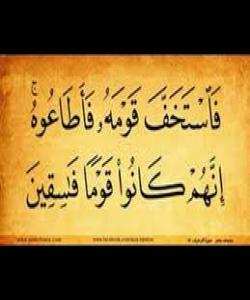 فَٱسْتَخَفَّ قَوْمَهُۥ فَأَطَاعُوهُ ۚ
إِنَّهُمْ كَانُوا۟ قَوْمًا فَـٰسِقِينَ